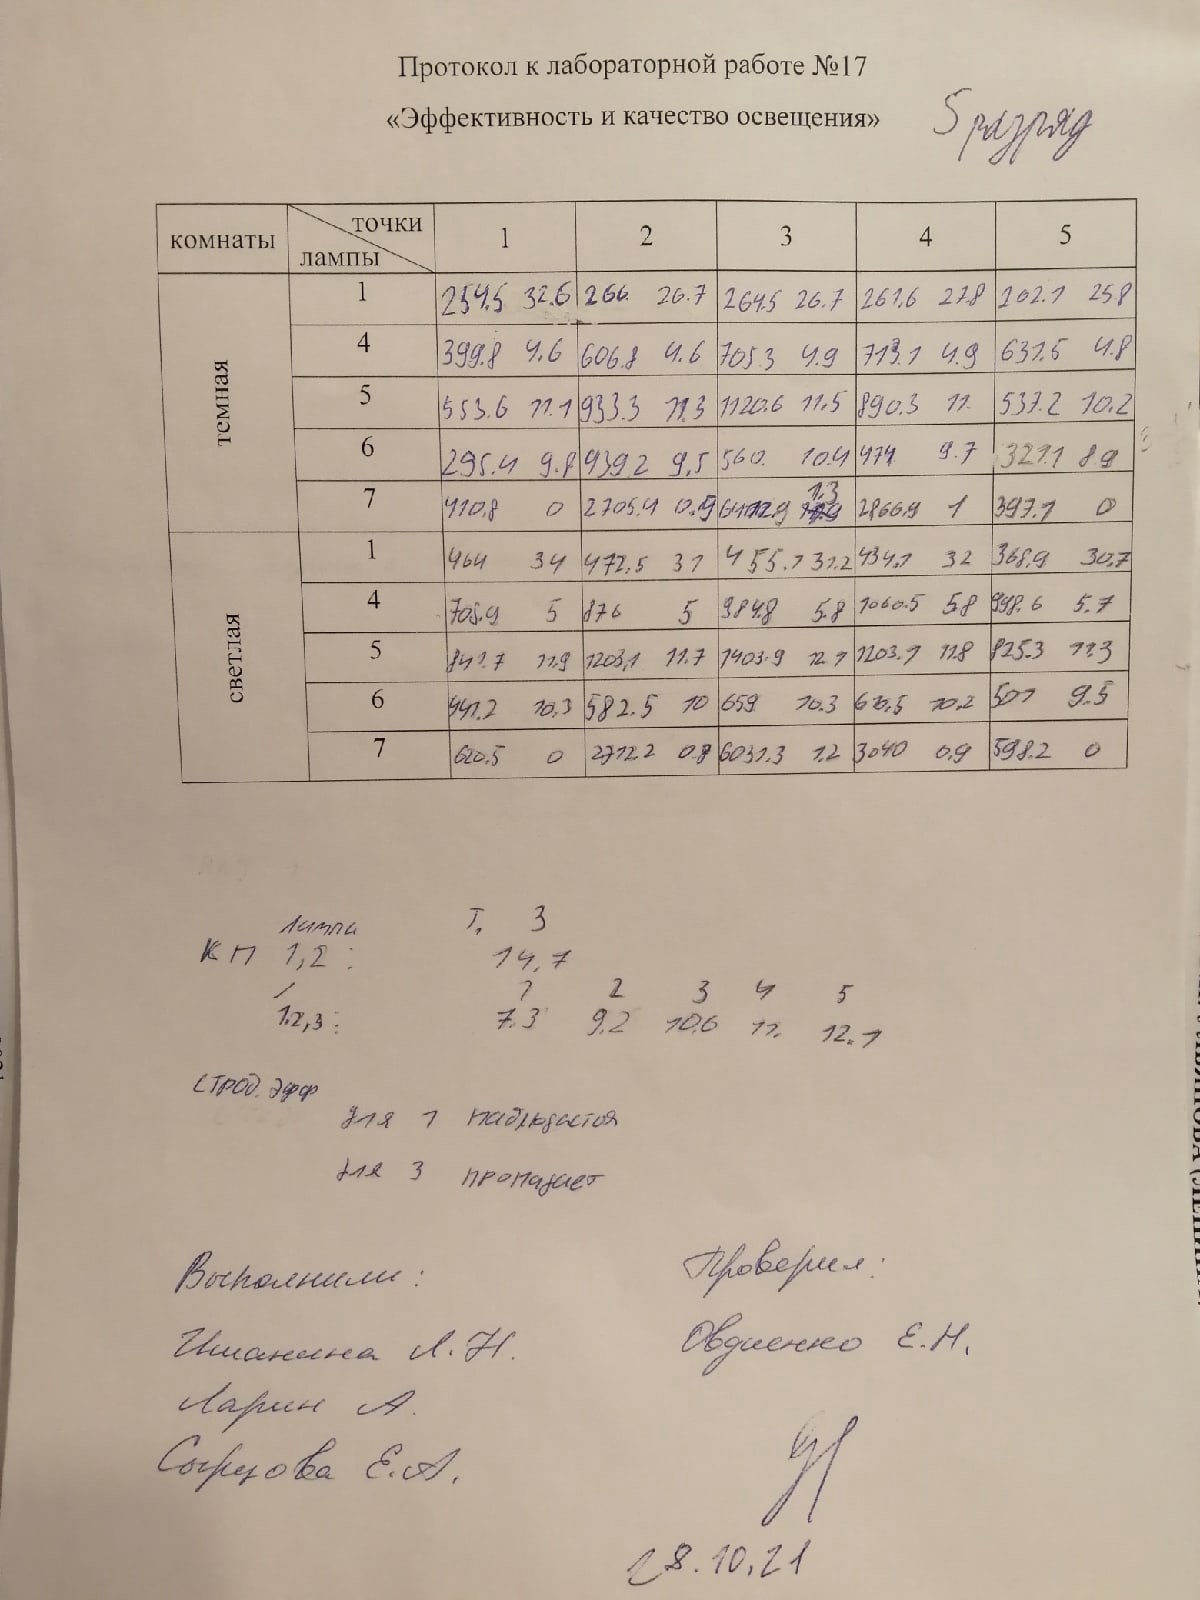 Протокол к лабораторной работе №17
«Эффективность и качество освещения»
5 разряд
комнаты точки лампы 1 2 3 4 5
темная
1 254.5 32.6 266. 26.7 264.5 26.7 261.6 27.8 202.1 25.8
4 399.8 4.6 606.8 4.6 705.3 4.9 713.1 4.9 631.5 4.8
5 553.6 11.1 933.3 11.3 1120.6 11.5 890.3 11. 537.2 10.2
6 295.4 9.8 439.2 9,5 560. 10.4 474 9.7 321.1 8.9
7 410.8 0 2705.4 0.9 1.3 2866.9 1 397.1 0
светлая
1 464 34 472.5 31 455.1 31.2 434.1 32 368.9 30,7
4 705.9 5 876 5 984.8 5.8 1060.5 5.8 998.6 5.7
5 841.7 11.9 1203,1 11.7 1403.9 12.1 1203.1 11.8 825.3 11.3
6 441.2 10.3 582.5 10 659 10.3 616.5 10.2 501 9.5
7 620.5 0 2712.2 0.8 6031.3 1.2 3040 0.9 598.2 0
Лампа Т. 3
КП 1,2: 14,7
1 2 3 4 5
1.2,3: 7.3 9.2 10.6 11. 12.1
строд. эфф
для 1 наблюдается
для 3 пропадает
Выполнили: Проверил:
Иманина Л.Н. Овдиенко Е.Н.
Ларин А.
Сырцова Е.А.
28.10.21